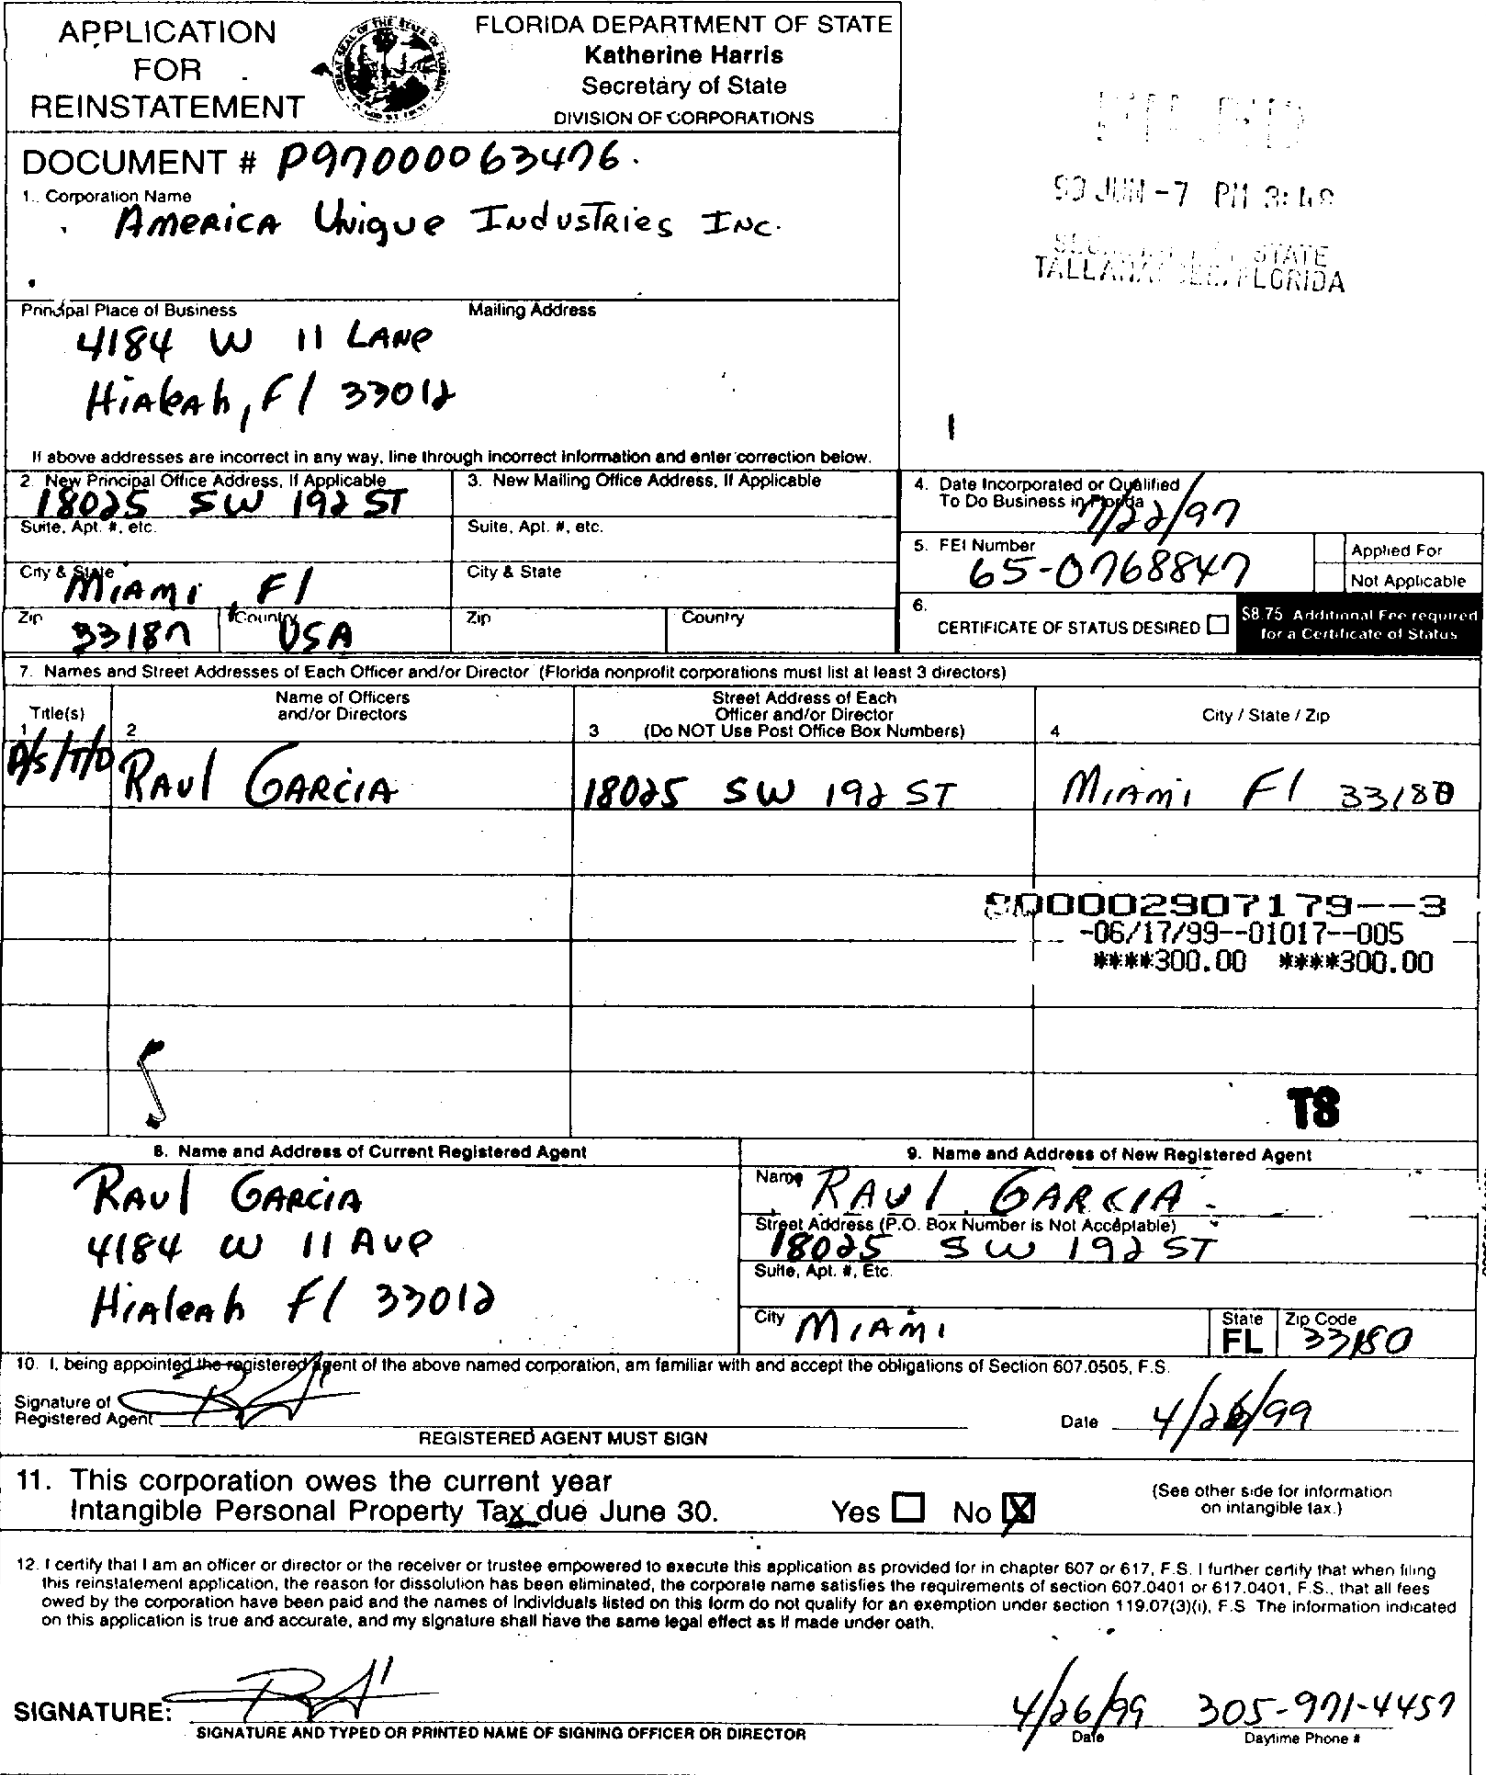 APPLICATION
FOR
REINSTATEMENT
FLORIDA DEPARTMENT OF STATE
Katherine Harris
Secretary of State
DIVISION OF CORPORATIONS
DOCUMENT # P97000063476.
1. Corporation Name
America Unique Industries Inc.
99 JUN -7 PM 3:48
STATE
TALLAHASSEE, FLORIDA
Principal Place of Business Mailing Address
4184 W 11 Lane
Hialeah, Fl 33012
If above addresses are incorrect in any way, line through incorrect information and enter correction below.
2. New Principal Office Address, If Applicable
18025 SW 192 ST
Suite, Apt. #, etc.
City & State
Miami, Fl
Zip 33187 Country USA
3. New Mailing Office Address, If Applicable
Suite, Apt. #, etc.
City & State
Zip Country
4. Date Incorporated or Qualified
To Do Business in Florida
7/22/97
5. FEI Number
65-0768847
Applied For
Not Applicable
6.
CERTIFICATE OF STATUS DESIRED
$8.75 Additional Fee required
for a Certificate of Status
7. Names and Street Addresses of Each Officer and/or Director (Florida nonprofit corporations must list at least 3 directors)
Title(s)
1
Name of Officers
and/or Directors
2
Street Address of Each
Officer and/or Director
3 (Do NOT Use Post Office Box Numbers)
City / State / Zip
4
P/S/T/D Raul Garcia 18025 SW 192 ST Miami Fl 33180
800002907179--3
-06/17/99--01017--005
****300.00 ****300.00
TS
8. Name and Address of Current Registered Agent
Raul Garcia
4184 W 11 Ave
Hialeah Fl 33012
9. Name and Address of New Registered Agent
Name RAUL GARCIA
Street Address (P.O. Box Number is Not Acceptable)
18025 SW 192 ST
Suite, Apt. #, Etc.
City Miami State FL Zip Code 33180
10. I, being appointed the registered agent of the above named corporation, am familiar with and accept the obligations of Section 607.0505, F.S.
Signature of
Registered Agent
Date 4/26/99
REGISTERED AGENT MUST SIGN
11. This corporation owes the current year
Intangible Personal Property Tax due June 30. Yes No X
(See other side for information
on intangible tax.)
12. I certify that I am an officer or director or the receiver or trustee empowered to execute this application as provided for in chapter 607 or 617, F.S. I further certify that when filing
this reinstatement application, the reason for dissolution has been eliminated, the corporate name satisfies the requirements of section 607.0401 or 617.0401, F.S., that all fees
owed by the corporation have been paid and the names of individuals listed on this form do not qualify for an exemption under section 119.07(3)(i), F.S. The information indicated
on this application is true and accurate, and my signature shall have the same legal effect as if made under oath.
SIGNATURE:
4/26/99 305-971-4457
SIGNATURE AND TYPED OR PRINTED NAME OF SIGNING OFFICER OR DIRECTOR
Date Daytime Phone #